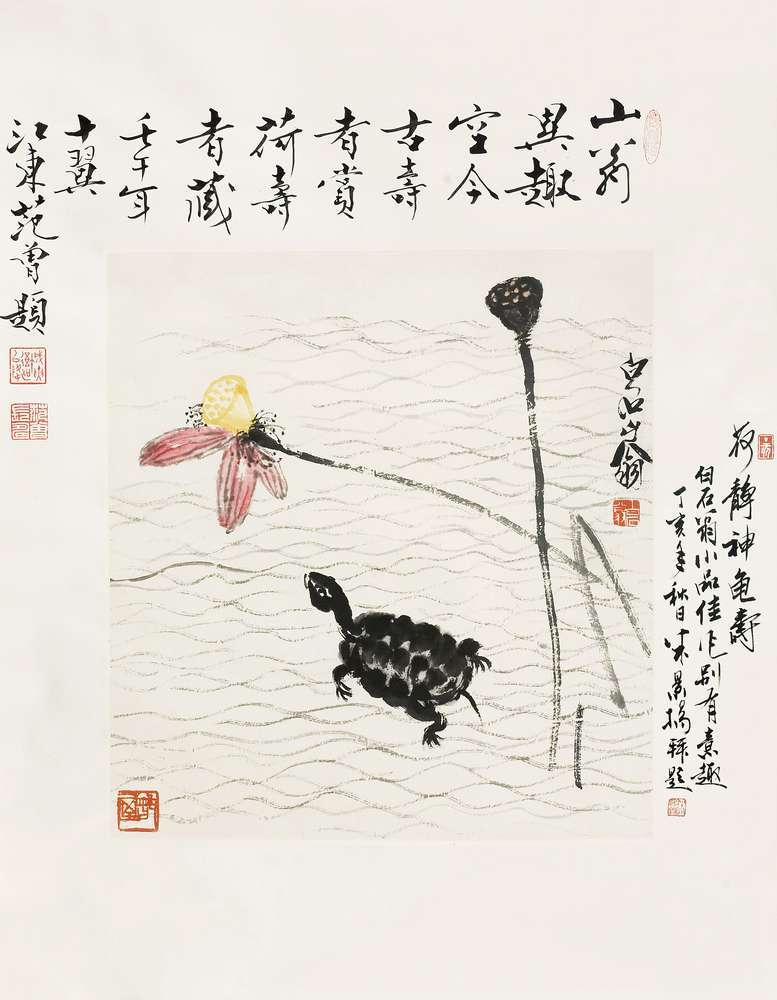 山翁
異趣
空今
古壽
者賞
荷壽
者藏
壬午年
十翼
江東范曾題
白石山翁
荷靜神龟壽
白石翁小品佳作别有意趣
丁亥年秋日米景揚拜題